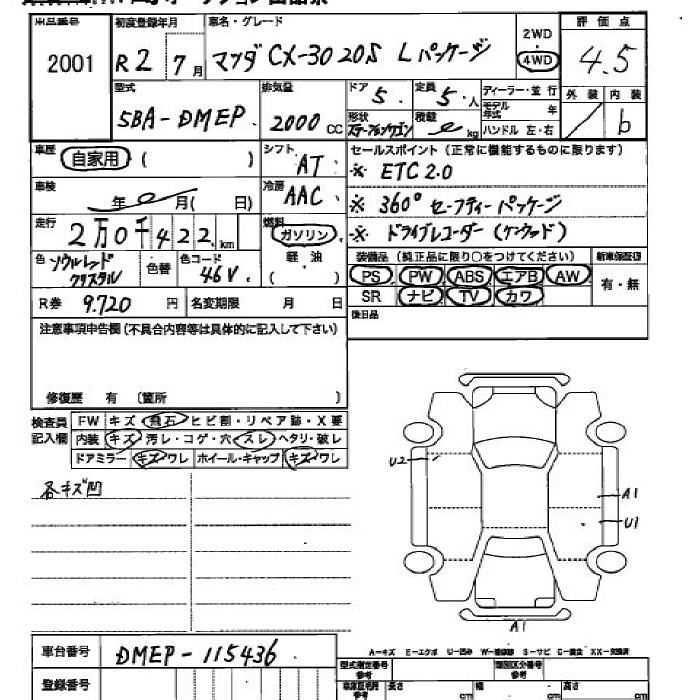 出品番号
2001
初度登録年月
R2 7月
車名・グレード
マツダ CX-30 20S Lパッケージ
2WD
4WD
評価点
4.5
型式
5BA-DMEP
排気量
2000 CC
ドア
5
定員
5人
ディーラー・並行
モデル年式 年
ハンドル 左・右
形状
ステーションワゴン
積載
kg
外装
内装
b
車歴
自家用 ( )
シフト
AT
セールスポイント (正常に機能するものに限ります)
※ ETC2.0
※ 360° セーフティーパッケージ
※ ドライブレコーダー(ケンウッド)
車検
年 月( 日)
冷房
AAC
走行
2万0千422km
燃料
ガソリン
軽・油
( )
色
ソウルレッド
クリスタル
色替
色コード
46V
装備品 (純正品に限り○をつけてください)
新車保証書
PS PW ABS エアB AW
有・無
SR ナビ TV カワ
R券 9.720 円
名変期限 月 日
後日品
注意事項申告欄(不具合内容等は具体的に記入して下さい)
修復歴 有 〔箇所 〕
検査員
記入欄
FW キズ・飛石・ヒビ割・リペア跡・X要
内装 キズ・汚レ・コゲ・穴・スレ・ヘタリ・破レ
ドアミラー キズ・ワレ ホイール・キャップ キズ・ワレ
各キズ凹
U2
A1
U1
A1
車台番号
DMEP-115436
登録番号
A-キズ E-エクボ U-凹み W-補修跡 S-サビ C-腐食 XX-交換済
型式指定番号
参考
類別区分番号
参考
長さ cm
幅 cm
高さ cm